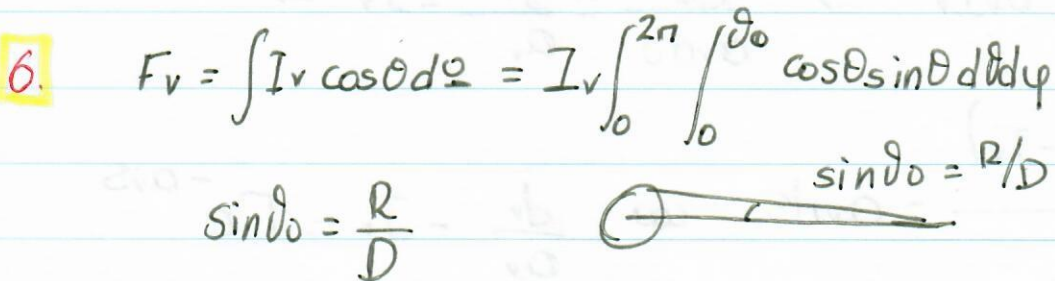 6. Fν = ∫ Iν cosθ dΩ = Iν ∫₀^2π ∫₀^ϑ₀ cosθ sinθ dϑ dφ
sinϑ₀ = R/D
sinϑ₀ = R/D